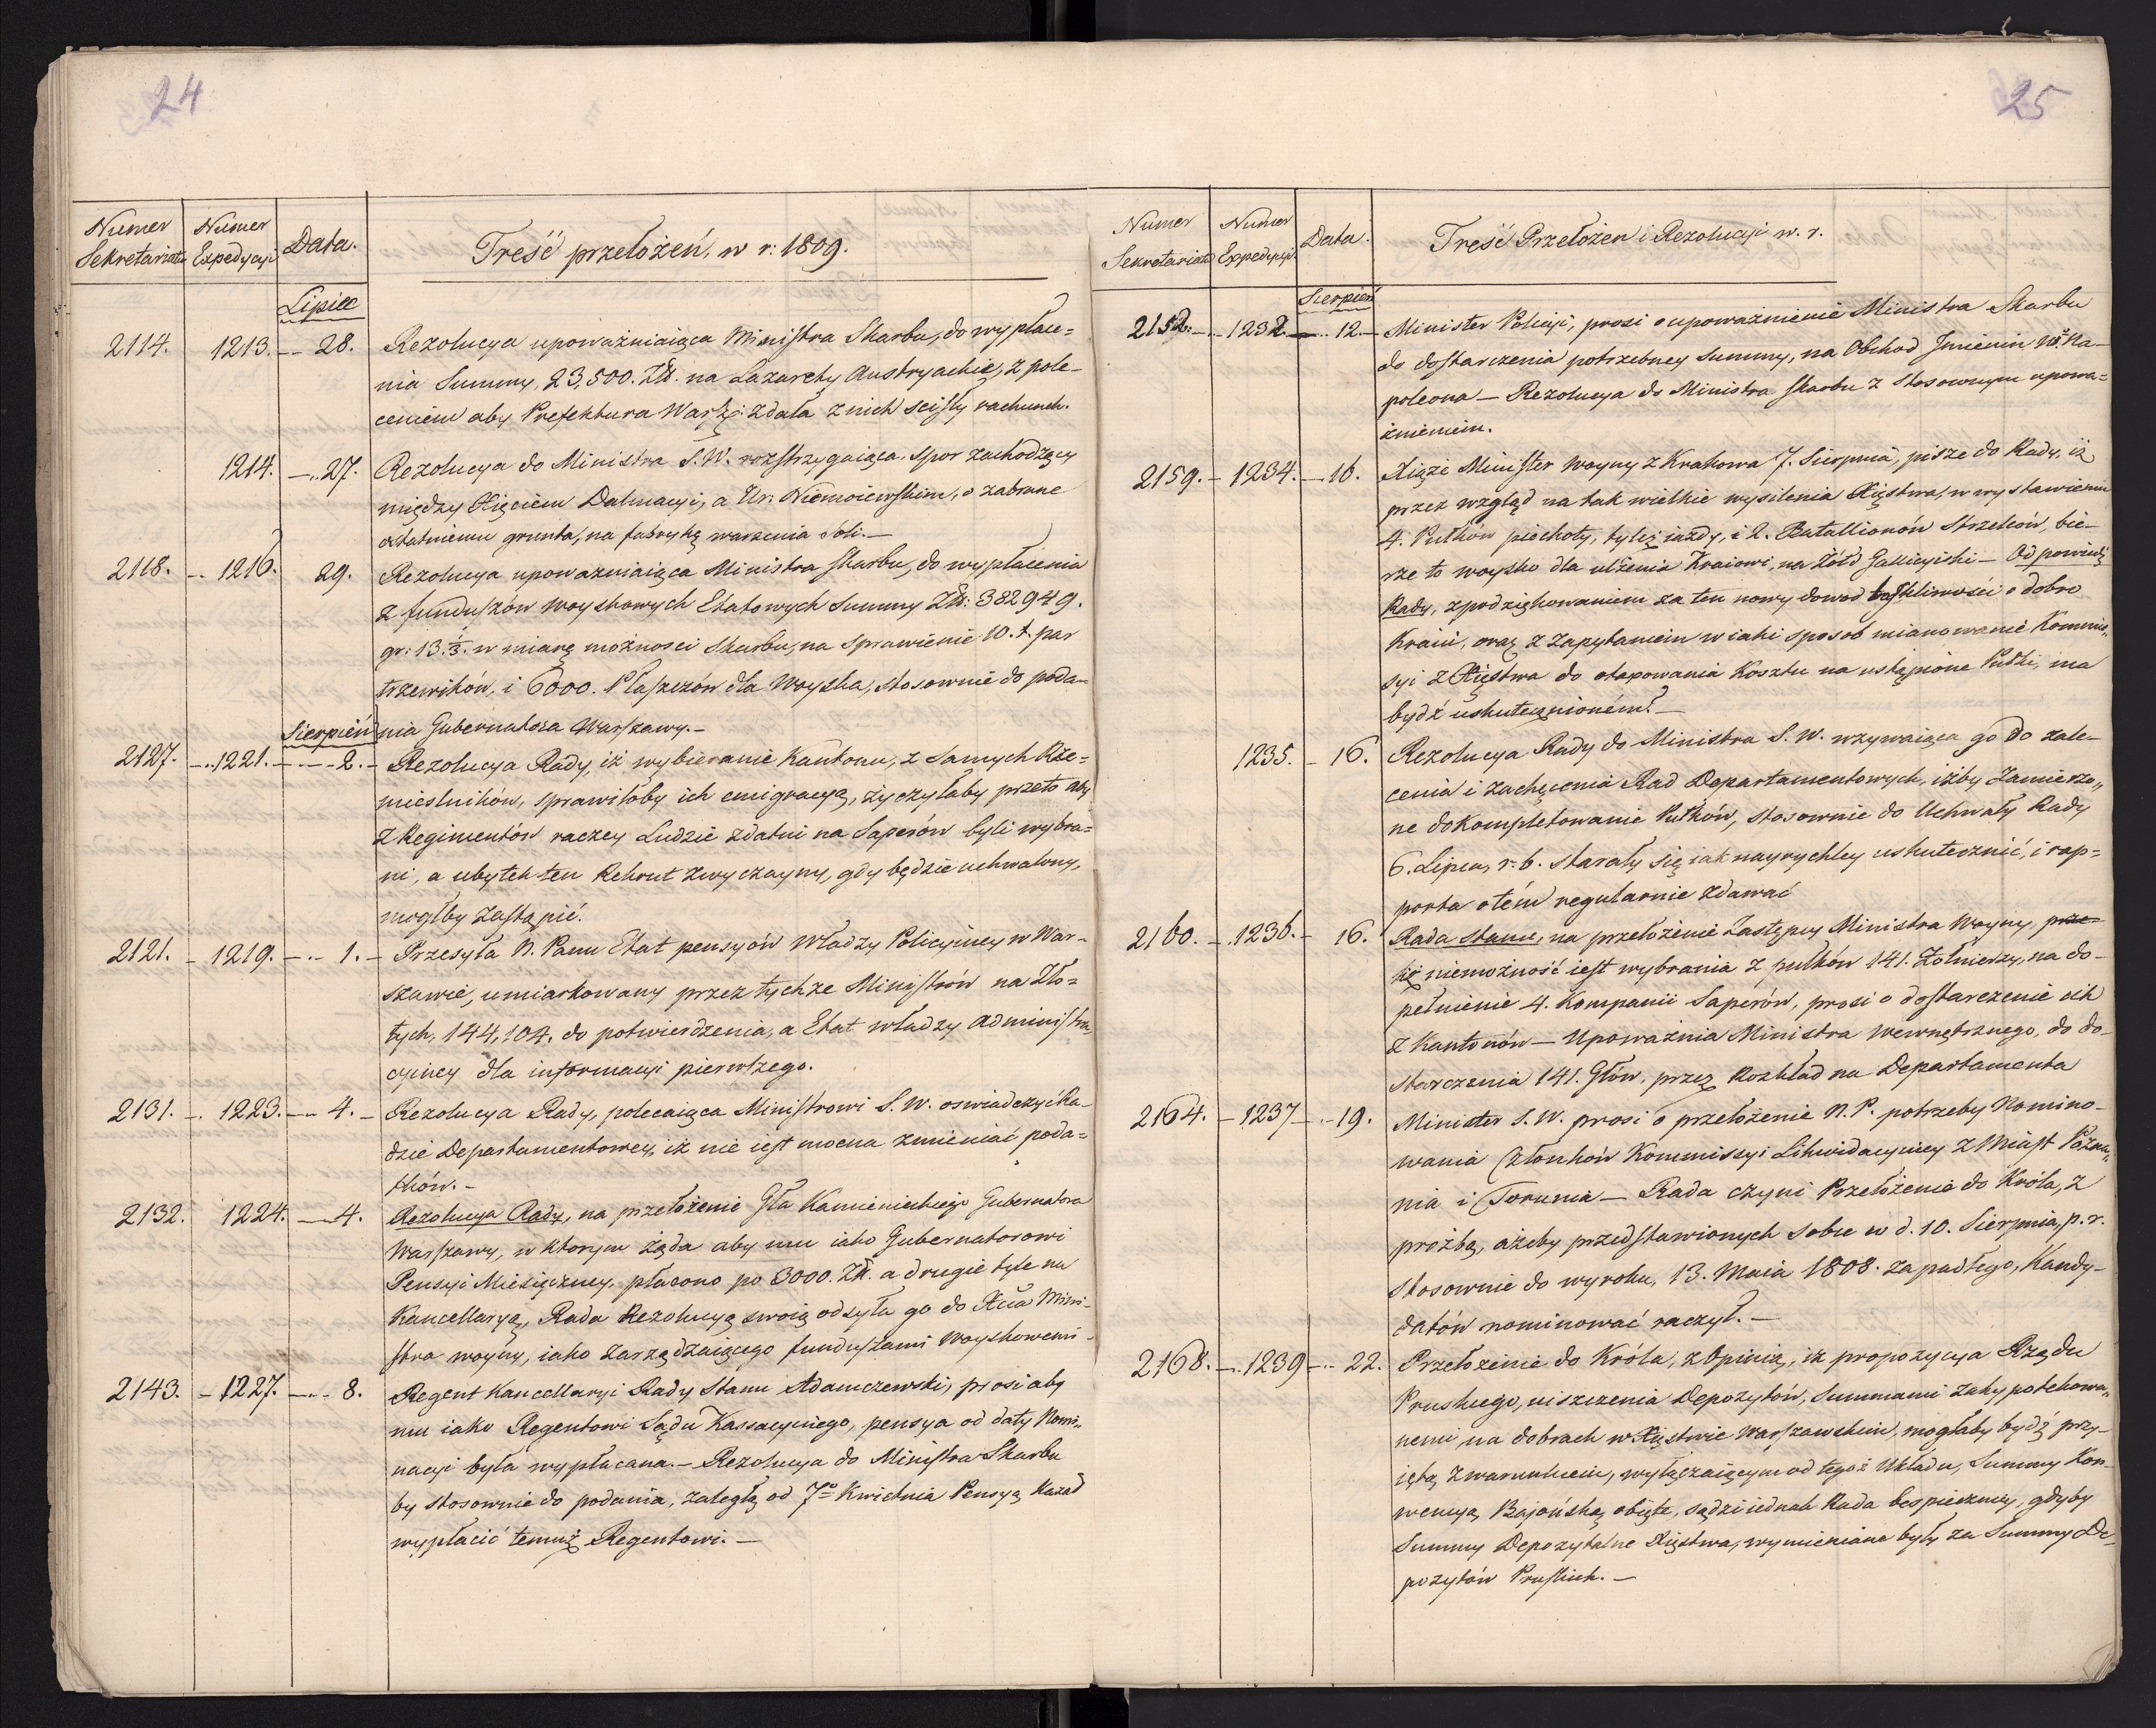 24
Numer Sekretariatu
Numer Expedycyi
Data.
Treść przełożeń, w r: 1809.
Lipiec
2114. 1213. 28. Rezolucya upoważniaiąca Ministra Skarbu, do wypłace=
nia Summy, 23,500. Zł. na Lazarety Austryackie, z pole-
ceniem aby Prefektura Warsz: zdała z nich scisły rachunek.
1214. 27. Rezolucya do Ministra S.W. rozstrzygaiąca spor zachodzący
między Xięciem Dalmacyi, a Ur: Niemoiewskim, o zabrane
ostatniemu grunta, na fabrykę warzenia Soli.—
2118. 1216. 29. Rezolucya upoważniaiąca Ministra Skarbu, do wypłacenia
z funduszów woyskowych Etatowych Summy Zł: 382949.
gr: 13.⅓. w miarę możnosci Skarbu, na sprawienie 10. t. par
trzewików, i 6000. Płaszczów dla Woyska, stosownie do poda-
nia Gubernatora Warszawy.—
Sierpień
2127. 1221. 2. Rezolucya Rady, iż wybieranie Kantonu, z samych Rze=
mieslników, sprawiłoby ich emigracyą, życzyłaby przeto aby
z Regimentów raczey Ludzie zdatni na Saperów byli wybra=
ni, a ubytek ten Rekrut zwyczayny, gdy będzie uchwalony,
mogłby zastąpić.
2121. 1219. 1. Przesyła N. Panu Etat pensyów Władzy Policyiney w War-
szawie, umiarkowany przez tychże Ministrów na Zło=
tych, 144,104. do potwierdzenia, a Etat władzy administra
cyiney dla informacyi pierwszego.
2131. 1223. 4. Rezolucya Rady, polecaiąca Ministrowi S.W. oswiadczyć Ra-
dzie Departamentowey, iż nie iest mocna zmieniać poda=
tków.—
2132. 1224. 4. Rezolucya Rady, na przełożenie Gła Kamienieckiego Gubernatora
Warszawy, w ktorym żąda aby mu iako Gubernatorowi
Pensyi Miesięczney, płacono po 3000. Zł. a drugie tyle na
Kancellaryą, Rada Rezolucyą swoią odsyła go do Xcia Mini-
stra woyny, iako zarządzaiącego funduszami Woyskowemi-
2143. 1227. 8. Regent Kancellaryi Rady Stanu Adamczewski, prosi aby
mu iako Regentowi Sądu Kassacyinego, pensya od daty Nomi„
nacyi była wypłacana.— Rezolucya do Ministra Skarbu
by stosownie do podania, zaległą od 7º Kwietnia Pensyą Kazał
wypłacić temuż Regentowi.—
25
Numer Sekretariatu
Numer Expedycyi
Data.
Treść Przełożen i Rezolucyi w. r.
Sierpień
2152. 1232. 12. Minister Policyi, prosi o upoważnienie Ministra Skarbu
do dostarczenia potrzebney Summy, na Obchod Jmienin Na-
poleona — Rezolucya do Ministra Skarbu z stosownym upowa=
żnieniem.
2159. 1234. 16. Xiąże Minister Woyny z Krakowa 7. Sierpnia, pisze do Rady, iż
przez wzgląd na tak wielkie wysilenia Xięstwa, w wystawieniu
4. Pułków piechoty, tyleż iazdy, i 2. Batallionów Strzelców, bie-
rze to woysko dla ulżenia Kraiowi, na Żołd Gallicyiski — Odpowiedź
Rady, z podziękowaniem za ten nowy dowod troskliwości o dobro
Kraiu, oraz z zapytaniem w iaki sposob mianowanie Kommis„
syi z Xięstwa do otaxowania Kosztu na ustąpione Pułki, ma
bydź uskutecznioném?—
1235. 16. Rezolucya Rady do Ministra S.W. wzywaiąca go do zale-
cenia i zachęcenia Rad Departamentowych, iżby zamierzo„
ne dokompletowanie Pułków, stosownie do Uchwały Rady
6. Lipca, r. b. starały się iak nayrychley uskutecznić, i rap=
porta o tém regularnie zdawać
2160. 1236. 16. Rada Stanu, na przełożenie Zastępcy Ministra Woyny, prze-
iż niemożność iest wybrania z pułków 141. Żołnierzy, na do-
pełnienie 4. Kompanii Saperów, prosi o dostarczenie ich
z Kantonów — Upoważnia Ministra Wewnętrznego, do do-
starczenia 141. Głów, przez Rozkład na Departamenta
2164. 1237 19. Minister S.W. prosi o przełożenie N.P. potrzeby Nomino-
wania Członków Kommissyi Likwidacyiney z Miast Pozna„
nia i Torunia — Rada czyni Przełożenie do Króla, z
prożbą, ażeby przedstawionych sobie w d. 10. Sierpnia, p. r.
stosownie do wyroku, 13. Maia 1808. zapadłego, Kandy-
datów nominować raczył.—
2168. 1239 22. Przełożenie do Króla, z Opinią, iż propozycya Rządu
Pruskiego, uiszczenia Depozytów, Summami zahypotekowa„
nemi, na dobrach w Xięstwie Warszawskim, mogłaby bydź przy-
iętą, z warunkiem, wyłączaiącym od tegoż Układu, Summy Kon-
wencyą Bajońską obięte, sądzi iednak Rada bespieczniey, gdyby
Summy Depozytalne Xięstwa, wymieniane były za Summy De-
pozytów Pruskich.—